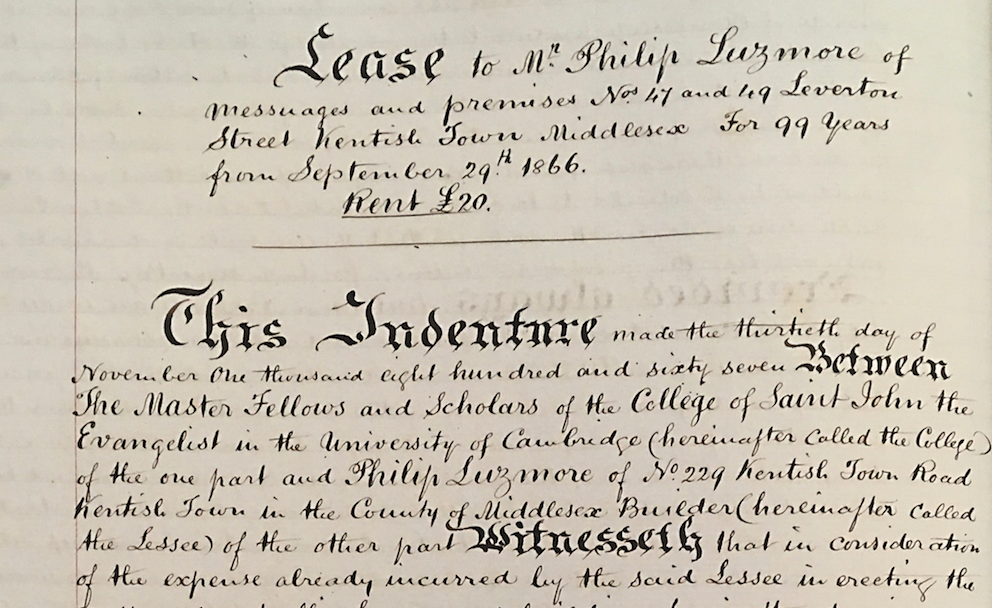 Lease to Mr. Philip Luzmore of
messuages and premises Nos 47 and 49 Leverton
Street Kentish Town Middlesex For 99 Years
from September 29th 1866.
Rent £20.
This Indenture made the thirtieth day of
November One thousand eight hundred and sixty seven Between
The Master Fellows and Scholars of the College of Saint John the
Evangelist in the University of Cambridge (hereinafter called the College)
of the one part and Philip Luzmore of No. 229 Kentish Town Road
Kentish Town in the County of Middlesex Builder (hereinafter called
the Lessee) of the other part Witnesseth that in consideration
of the expense already incurred by the said Lessee in erecting the